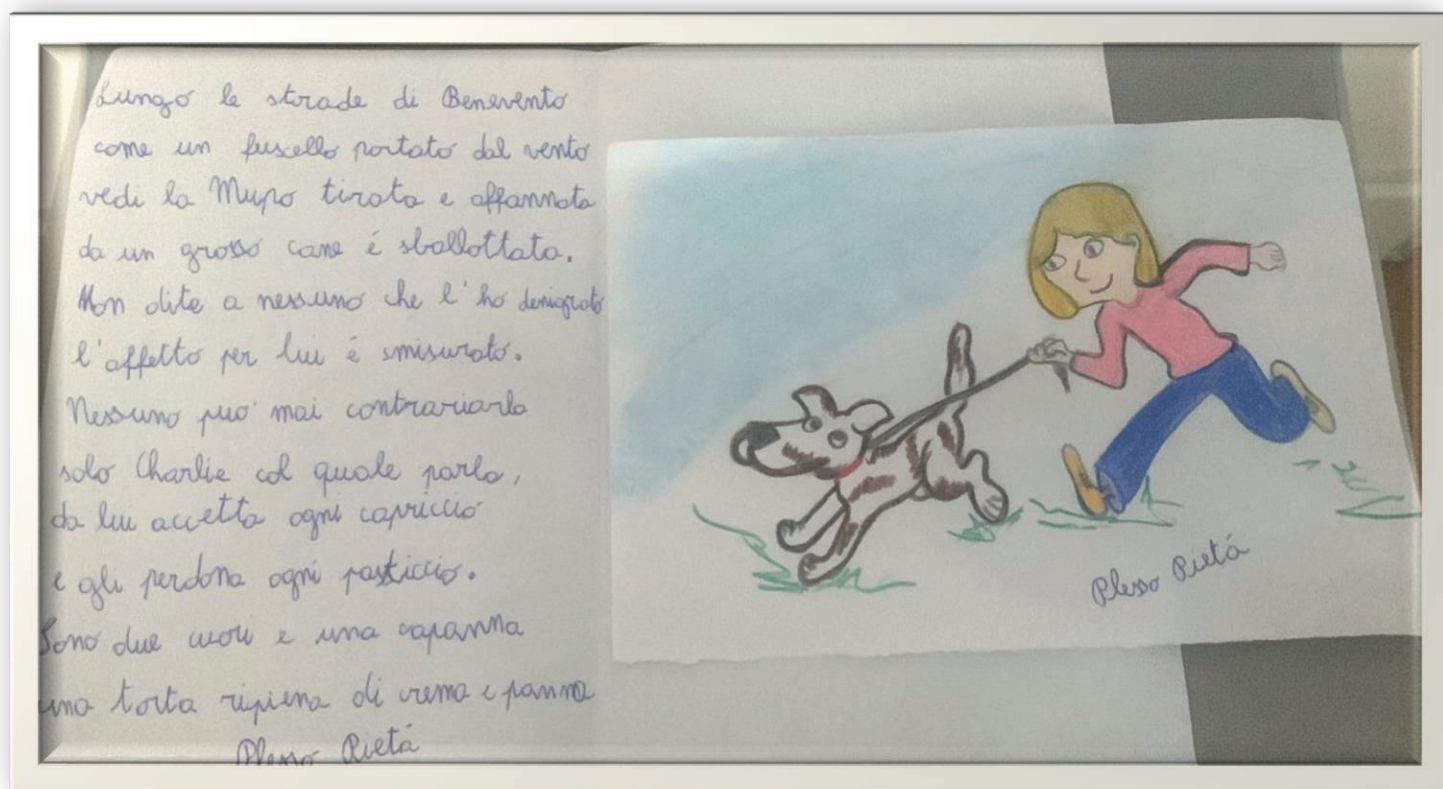 Lungo le strade di Benevento
come un fuscello portato dal vento
vedi la Mupo tirata e affannata
da un grosso cane é sballottata.
Non dite a nessuno che l'ho denigrato
l'affetto per lui é smisurato.
Nessuno puo' mai contrariarla
solo Charlie col quale parla,
da lui accetta ogni capriccio
e gli perdona ogni pasticcio.
Sono due cuori e una capanna
una torta ripiena di crema e panna
Plesso Pietá
Plesso Pietá